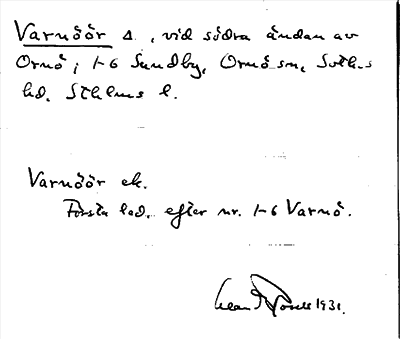 Varnöör Δ., vid södra ändan av
Ornö; 1-6 Sundby, Ornö sn, Soth-s
hd. Sthlms l.
Varnöör ek.
Första led. efter nr. 1-6 Varnö.
1931.